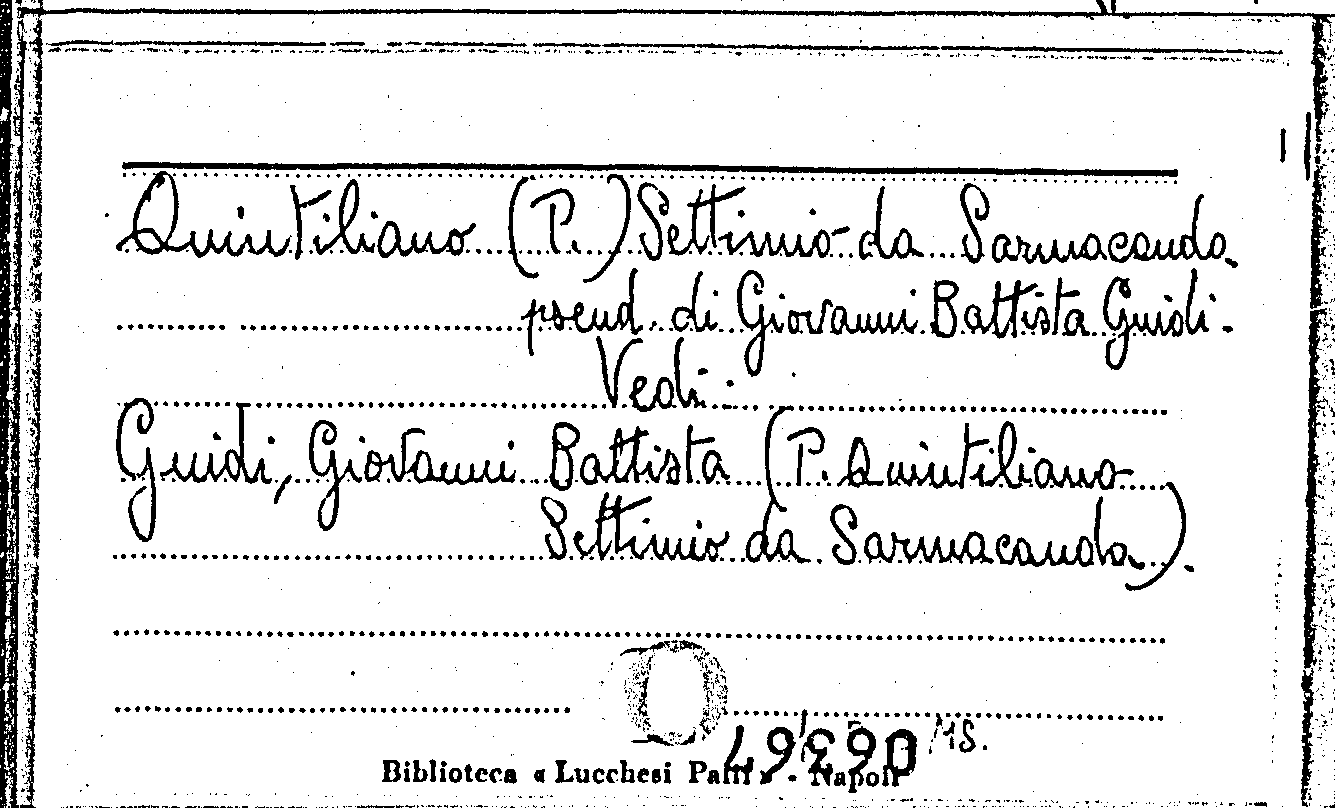 Quintiliano (P.) Settimio da Sarmacanda.
pseud. di Giovanni Battista Guidi.
Vedi:
Guidi, Giovanni Battista (P. Quintiliano
Settimio da Sarmacanda).
/18.
Biblioteca « Lucchesi Palli » - Napoli